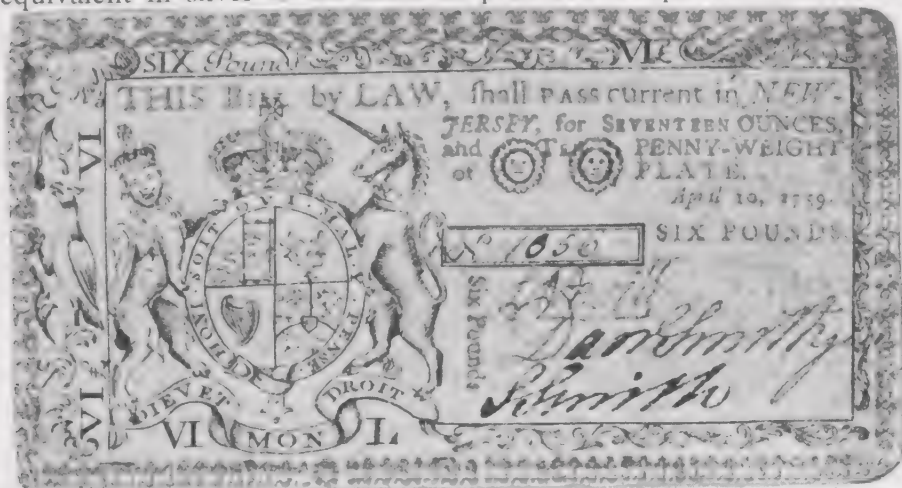 SIX Pound VI
THIS Bill by LAW, shall PASS current in NEW-
JERSEY, for SEVENTEEN OUNCES,
and TEN PENNY-WEIGHT
of PLATE.
April 10, 1759.
No 1650
SIX POUNDS
Six Pounds
VI
VI
HONI SOIT QUI MAL Y PENSE
DIEU ET MON DROIT
VI L
Smith
S Smith